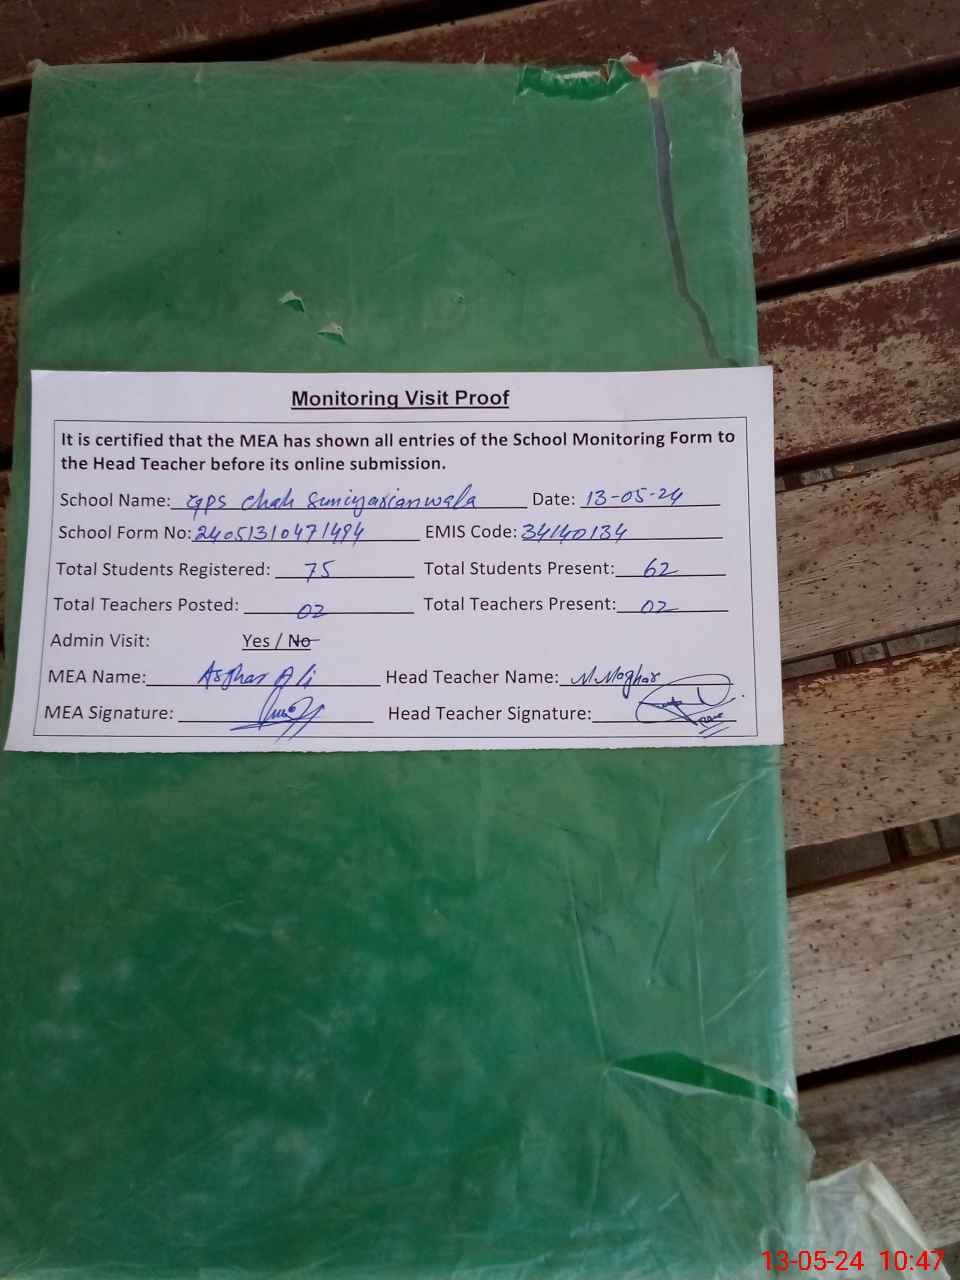 Monitoring Visit Proof
It is certified that the MEA has shown all entries of the School Monitoring Form to
the Head Teacher before its online submission.
School Name: GPS Chah Suniyarianwala Date: 13-05-24
School Form No: 24051310471494 EMIS Code: 34140134
Total Students Registered: 75 Total Students Present: 62
Total Teachers Posted: 02 Total Teachers Present: 02
Admin Visit: Yes / No
MEA Name: Asghar Ali Head Teacher Name: M. Moghar
MEA Signature: Head Teacher Signature:
13-05-24 10:47